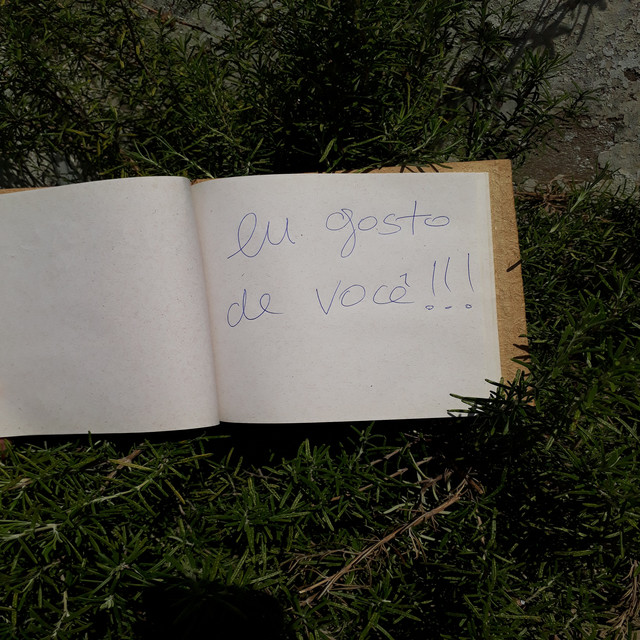 eu gosto
de você!!!